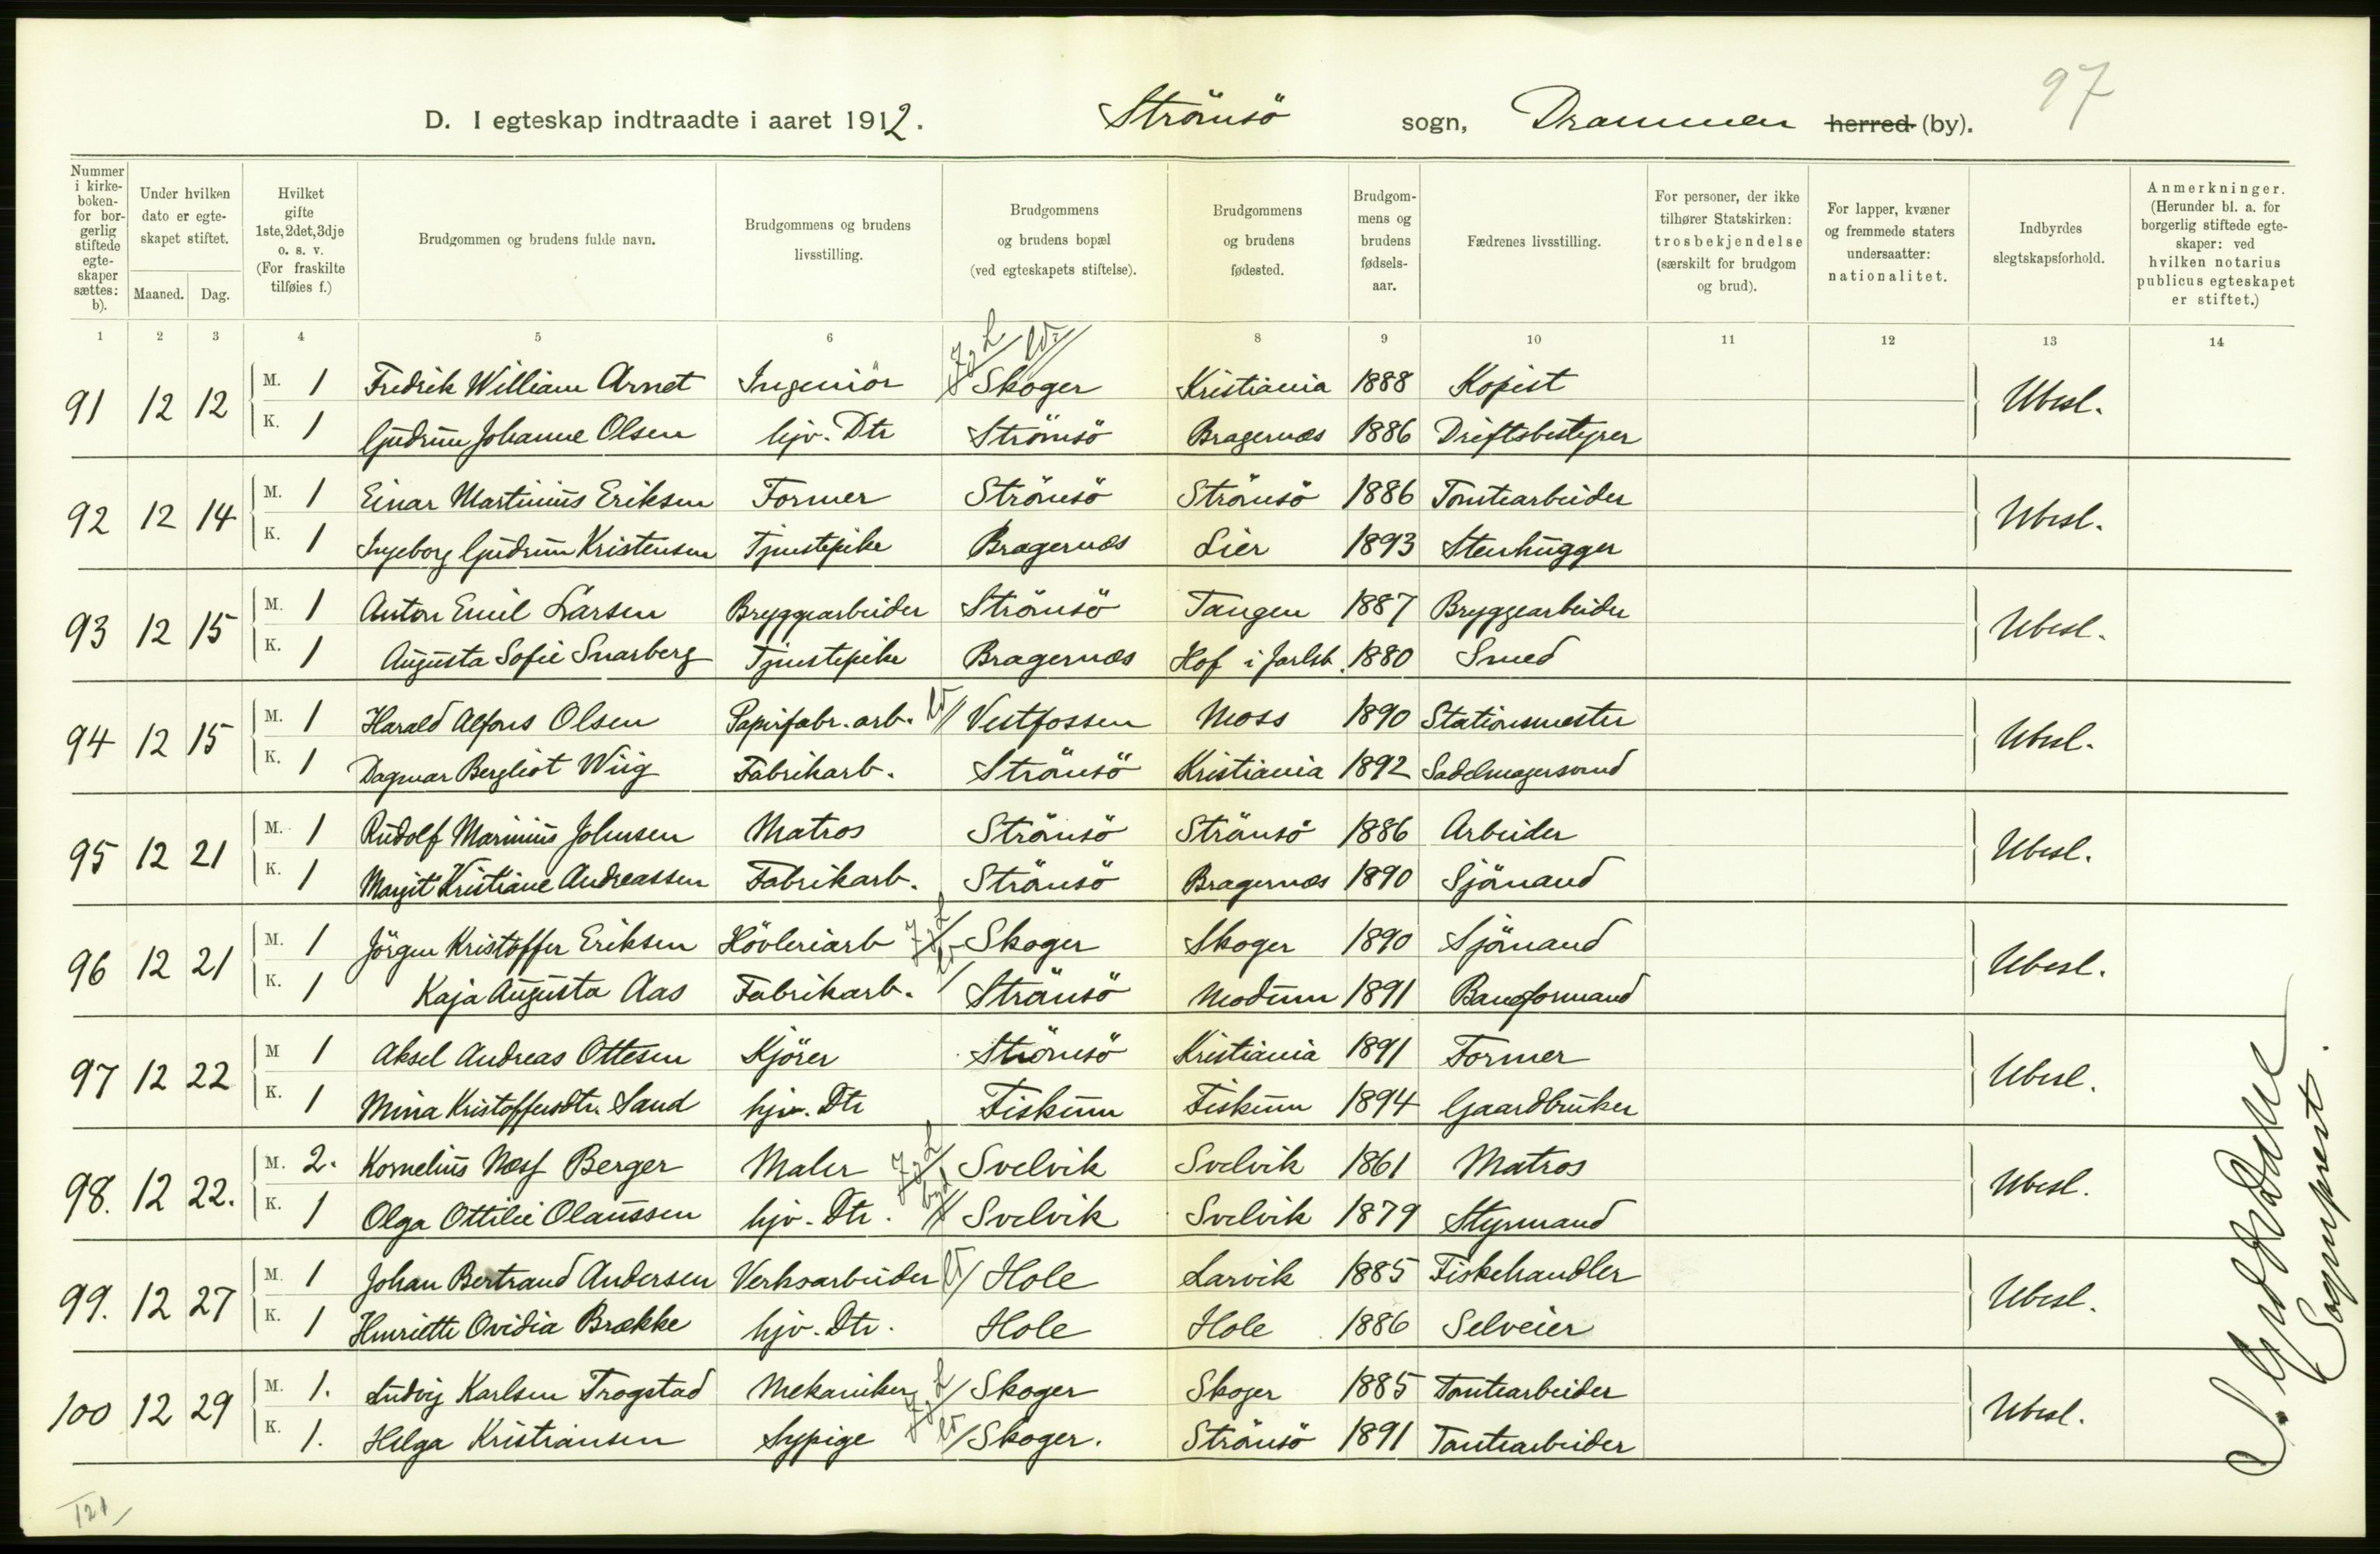 97
D. I egteskap indtraadte i aaret 1912. Strömsö sogn, Drammen herred (by).
Nummer i kirkeboken for borgerlig stiftede egteskaper sættes: b). | Under hvilken dato er egteskapet stiftet. Maaned. Dag. | Hvilket gifte 1ste, 2det, 3dje o. s. v. (For fraskilte tilføies f.) | Brudgommen og brudens fulde navn. | Brudgommens og brudens livsstilling. | Brudgommens og brudens bopæl (ved egteskapets stiftelse). | Brudgommens og brudens fødested. | Brudgommens og brudens fødselsaar. | Fædrenes livsstilling. | For personer, der ikke tilhører Statskirken: trosbekjendelse (særskilt for brudgom og brud). | For lapper, kvæner og fremmede staters undersaatter: nationalitet. | Indbyrdes slegtskapsforhold. | Anmerkninger. (Herunder bl. a. for borgerlig stiftede egteskaper: ved hvilken notarius publicus egteskapet er stiftet.)
1 2 3 4 5 6 8 9 10 11 12 13 14
91 12 12 M. 1 Fredrik William Arnet Ingeniör Skoger Kristiania 1888 Kopist Ubesl.
K. 1 Gudrun Johanne Olsen hjv. Dtr Strömsö Bragernæs 1886 Driftsbestyrer
92 12 14 M. 1 Einar Martinius Eriksen Former Strömsö Strömsö 1886 Tomtearbeider Ubesl.
K. 1 Ingeborg Gudrun Kristensen Tjenstepike Bragernæs Lier 1893 Stenhugger
93 12 15 M. 1 Anton Emil Larsen Bryggearbeider Strömsö Tangen 1887 Bryggearbeider Ubesl.
K. 1 Augusta Sofie Snarberg Tjenstepike Bragernæs Hof i Jarlsb. 1880 Smed
94 12 15 M. 1 Harald Alfons Olsen Papirfabr. arb. Vestfossen Moss 1890 Stationsmester Ubesl.
K. 1 Dagmar Bergliot Wiig Fabrikarb. Strömsö Kristiania 1892 Sadelmagersvend
95 12 21 M. 1 Rudolf Marinius Johnsen Matros Strömsö Strömsö 1886 Arbeider Ubesl.
K. 1 Margit Kristiane Andreassen Fabrikarb. Strömsö Bragernæs 1890 Sjömand
96 12 21 M. 1 Jörgen Kristoffer Eriksen Hövleriarb Skoger Skoger 1890 Sjömand Ubesl.
K. 1 Kaja Augusta Aas Fabrikarb. Strömsö Modum 1891 Baneformand
97 12 22 M 1 Aksel Andreas Ottesen Kjörer Strömsö Kristiania 1891 Former Ubesl.
K. 1 Mina Kristoffersdtr. Sand hjv. Dtr Fiskum Fiskum 1894 Gaardbruker
98. 12 22. M. 2. Kornelius Næsf Berger Maler Svelvik Svelvik 1861 Matros Ubesl.
K. 1 Olga Ottilie Olaussen hjv. Dtr. Svelvik Svelvik 1879 Styrmand
99. 12 27 M. 1 Johan Bertrand Andersen Verksarbeider Hole Larvik 1885 Fiskehandler Ubesl.
K. 1 Henriette Ovidia Brække hjv. Dtr. Hole Hole 1886 Selveier
100 12 29 M. 1. Ludvig Karlsen Trogstad Mekaniker Skoger Skoger 1885 Tomtearbeider Ubesl.
K. 1. Helga Kristiansen Sypige Skoger. Strömsö 1891 Tomtearbeider
Sogneprest.
121